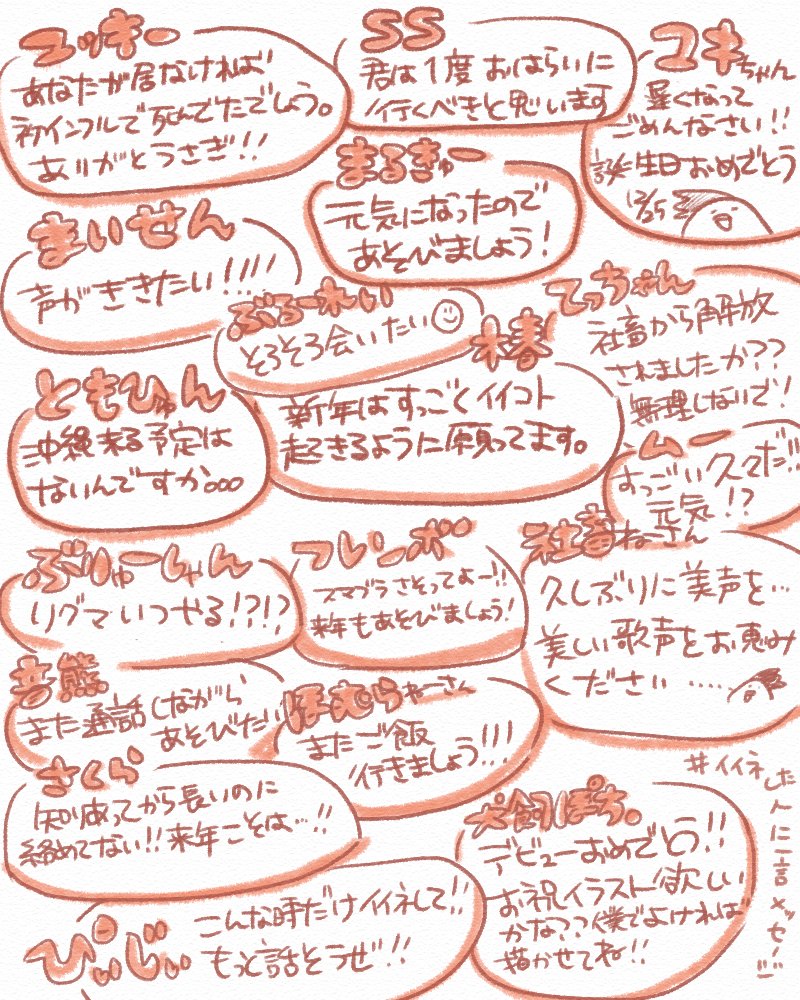 ユッキー
あなたが居なければ
初インフルで死んでたでしょう。
ありがとうさぎ!!
SS
君は1度おはらいに
行くべきと思います
ユキちゃん
遅くなって
ごめんなさい!!
誕生日おめでとう
12/25
まるきゅー
元気になったので
あそびましょう!
まいせん
声がききたい!!!!
ぶるーれい
そろそろ会いたい
てっちゃん
社畜から解放
されましたか??
無理しないで!
椿
新年はすっごくイイコト
起きるように願ってます。
ともひゅん
沖縄来る予定は
ないんですか。。。
ムー
すっごい久々だ!!
元気!?
社畜ねーさん
久しぶりに美声を…
美しい歌声をお恵み
ください……
ぶりゅーしゃん
リグマいつやる!?!?
フレンボ
スマブラさそってよー!!
来年もあそびましょう!
音熊
また通話しながら
あそびたい
ほむらねーさん
またご飯
行きましょう!!!
さくら
知りあってから長いのに
絡めてない!!来年こそは…!!
#イイネしたんに一言メッセ!!
犬飼ぽち。
デビューおめでとう!!
お祝イラスト欲しい
かな??僕でよければ
描かせてね!!
ぴぃじぃ
こんな時だけイイネして!!
もっと話そうぜ!!